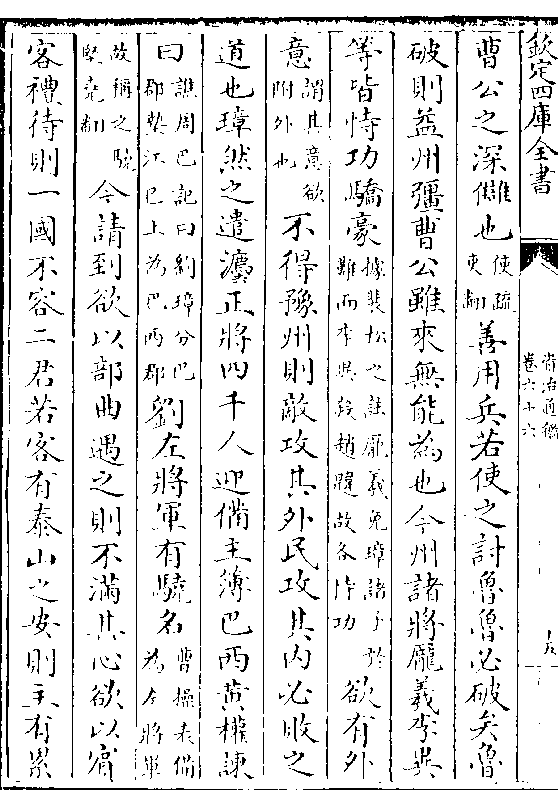 欽定四庫全書
資治通鑑
卷六十六
曹公之深讎也使疏吏翻善用兵若使之討魯魯必破矣魯
破則益州彊曹公雖來無能為也今州諸將龐羲李異
等皆恃功驕豪據裴松之註龐羲免璋諸子於難而李異殺趙韙故各恃功欲有外
意謂其意欲附外也不得豫州則敵攻其外民攻其內必敗之
道也璋然之遣灋正將四千人迎備主簿巴西黃權諫
曰譙周巴記曰劉璋分巴郡墊江已上為巴西郡劉左將軍有驍名曹操表備為左將軍
故稱之驍堅堯翻今請到欲以部曲遇之則不滿其心欲以賓
客禮待則一國不容二君若客有泰山之安則主有累